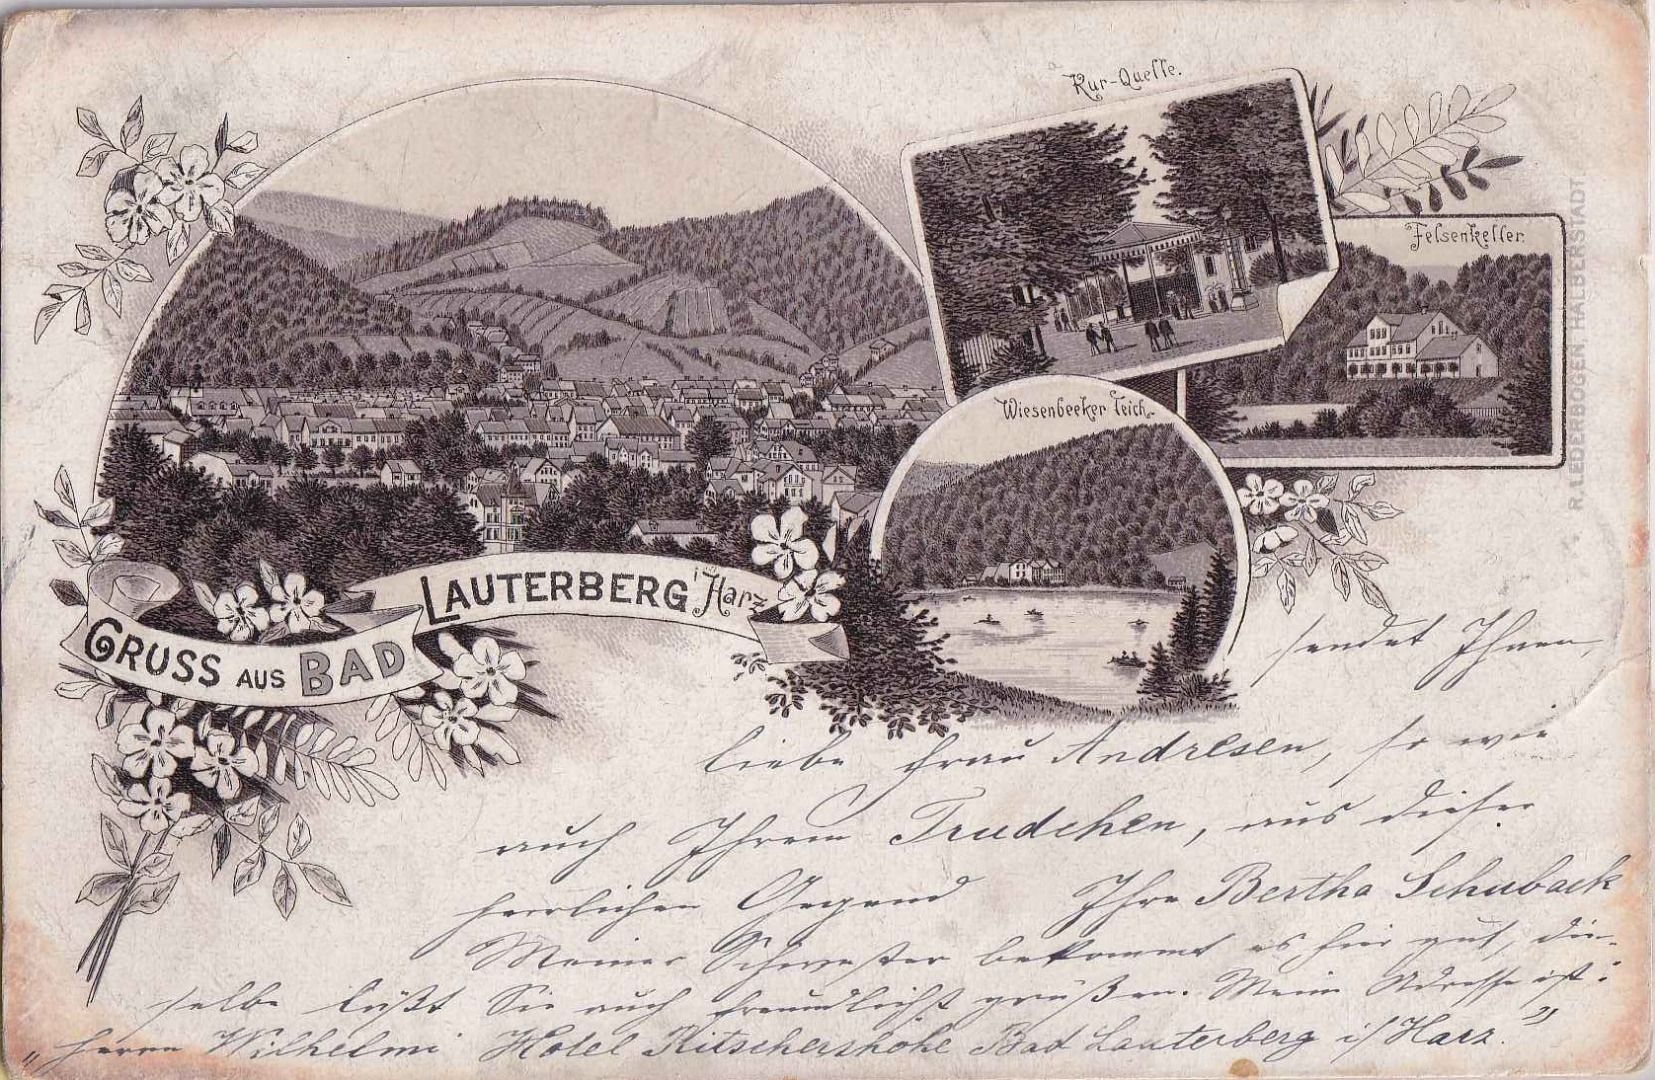 Kur-Quelle.
Felsenkeller.
Wiesenbeeker Teich.
R. LEDERBOGEN, HALBERSTADT.
GRUSS AUS BAD LAUTERBERG i/Harz
sendet Ihnen,
liebe Frau Andresen, so wie
auch Ihrem Trudchen, aus dieser
herrlichen Gegend Ihre Bertha Schuback
Meiner Schwester bekommt es hier gut, die-
selbe läßt Sie auch freundlichst grüßen. Meine Adresse ist:
"Herrn Wilhelmi Hotel Ritschershöhe Bad Lauterberg i/Harz."